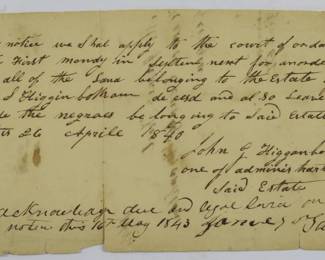 notice we Shal apply to the court of orda
First monday in Septem next for an orde
all of the Land belonging to the Estate
S Higginbotham decesd and al So Leave
the negroes be longing to Said Estate
26 Aprile 1840
John G Higginbo
one of adminis
Said Estate
acknowledge due and Legal
notice this 10th May 1843